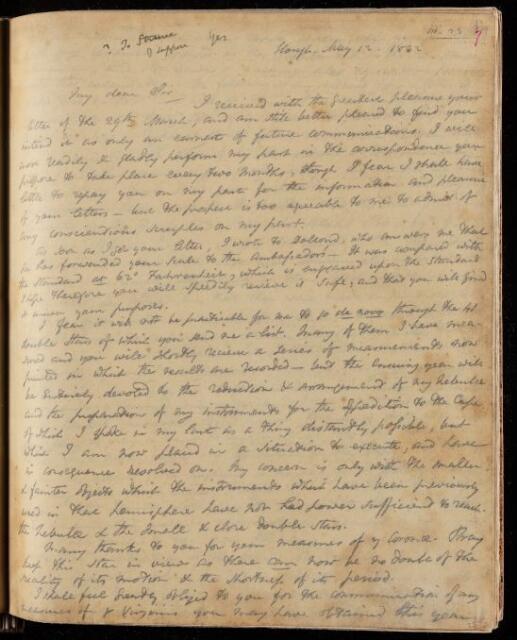 ? To Struve Yes
I suppose
Slough, May 12. 1832
My dear Sir — I received with the greatest pleasure your
letter of the 29th March, and am still better pleased to find you
intend it as only an earnest of future communications. I will
most readily & gladly perform my part in the correspondence you
propose to take place every two months, though I fear I shall have
little to repay you on my part for the information and pleasure
of your letters — but the proposal is too agreeable to me to admit of
any conscientious scruples on my part.
As soon as I got your letter, I wrote to Dollond, who answers me that
he has forwarded your scale to the Ambassador — It was compared with
the Standard at 62° Fahrenheit, which is engraved upon the Standard
I hope therefore you will speedily receive it safe, and that you will find
it answer your purposes.
I fear it will not be practicable for me to go de novo through the
double stars of which you send me a list. Many of them I have mea-
sured and you will shortly receive a series of measurements now
printed in which the results are recorded — but the ensuing year will
be entirely devoted to the reduction & arrangement of my Nebulae
and the preparation of my instruments for the expedition to the Cape
of which I spoke in my last as a thing distantly possible, but
which I am now placed in a situation to execute, and have
in consequence resolved on. My concern is only with the smaller
& fainter objects which the instruments which have been previously
used in that hemisphere have not had power sufficient to reach.
the Nebulae & the small & close double stars.
Many thanks to you for your measures of η Coronae. Pray
keep this star in view as there can now be no doubt of the
reality of its motion & the shortness of its period.
I shall feel greatly obliged to you for the communication of any
measures of γ Virginis you may have obtained this year